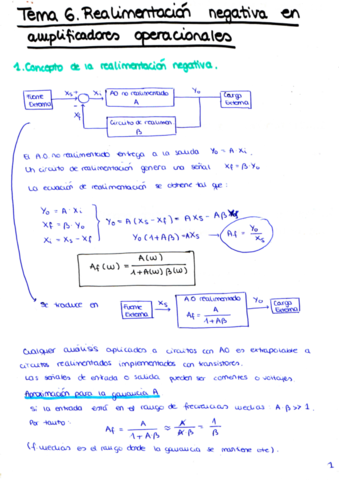 Tema 6. Realimentación negativa en
amplificadores operacionales
1. Concepto de la realimentación negativa.
Fuente Externa
Xs +
Xi
AO no realimentado A
Yo
Carga Externa
-
Xf
Circuito de realimen β
El AO no realimentado entrega a la salida Yo = A · Xi.
Un circuito de realimentación genera una señal Xf = β · Yo
La ecuación de realimentación se obtiene tal que:
Yo = A · Xi
Xf = β · Yo
Xi = Xs - Xf
Yo = A (Xs - Xf) = AXs - Aβ
Yo (1 + Aβ) = AXs → Af = Yo / Xs
Af(ω) = A(ω) / 1 + A(ω) β(ω)
Se traduce en
Fuente Externa
Xs
AO realimentado Af = A / 1 + Aβ
Yo
Carga Externa
Cualquier análisis aplicados a circuitos con AO es extrapolable a
circuitos realimentados implementados con transistores.
Las señales de entrada o salida pueden ser corrientes o voltajes.
Aproximación para la ganancia A
Si la entrada está en el rango de frecuencias medias: A · β >> 1.
Por tanto: Af = A / 1 + Aβ ≈ A / A β = 1 / β
(f medias es el rango donde la ganancia se mantiene cte).
1